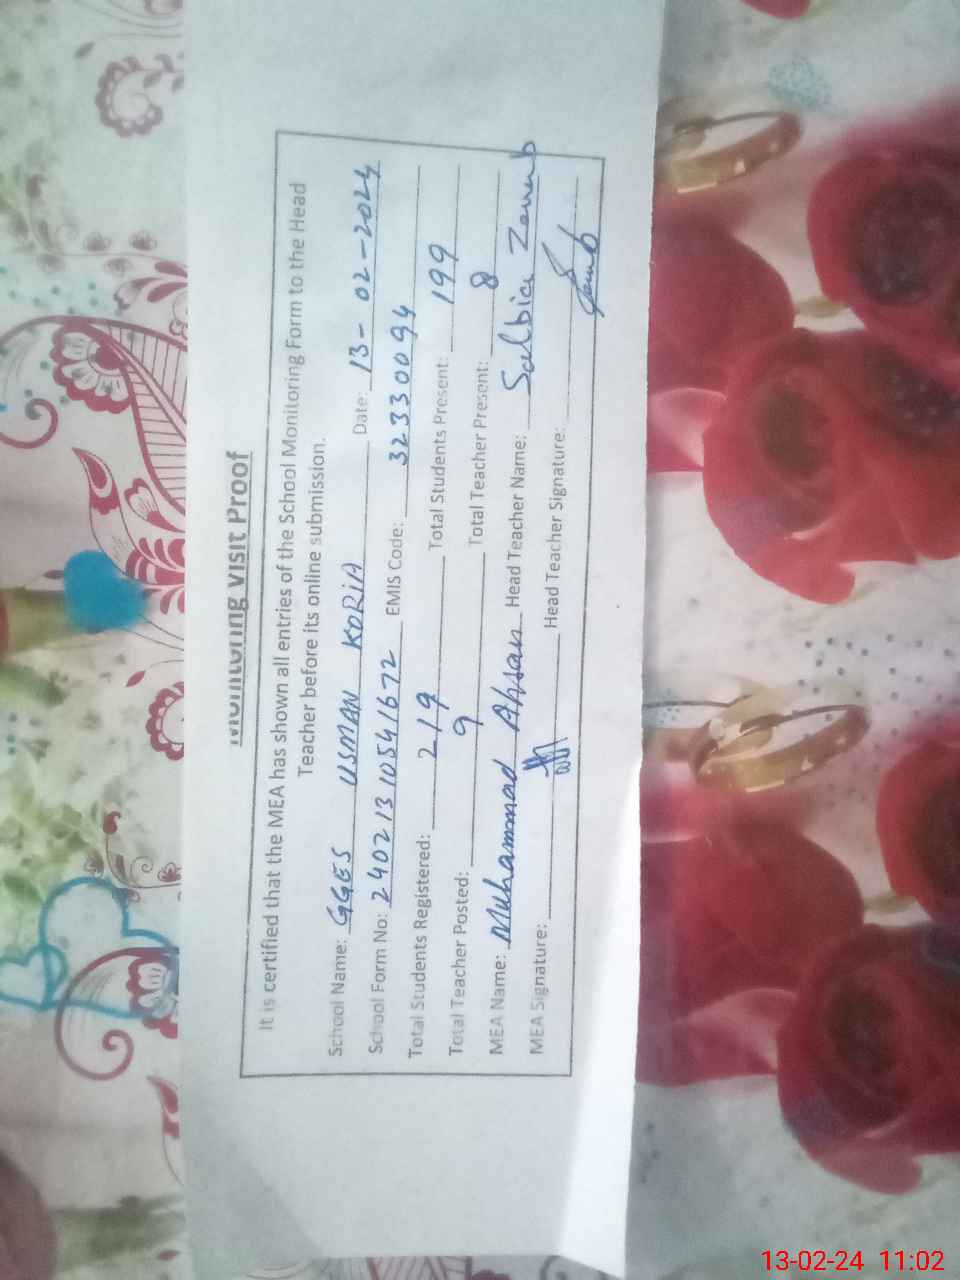 Monitoring Visit Proof
It is certified that the MEA has shown all entries of the School Monitoring Form to the Head
Teacher before its online submission.
School Name: GGES USMAN KORIA Date: 13-02-2024
School Form No: 2402131054 1672 EMIS Code: 32330094
Total Students Registered: 219 Total Students Present: 199
Total Teacher Posted: 9 Total Teacher Present: 8
MEA Name: Muhammad Ahsan Head Teacher Name: Zeneb
MEA Signature: Head Teacher Signature:
13-02-24 11:02